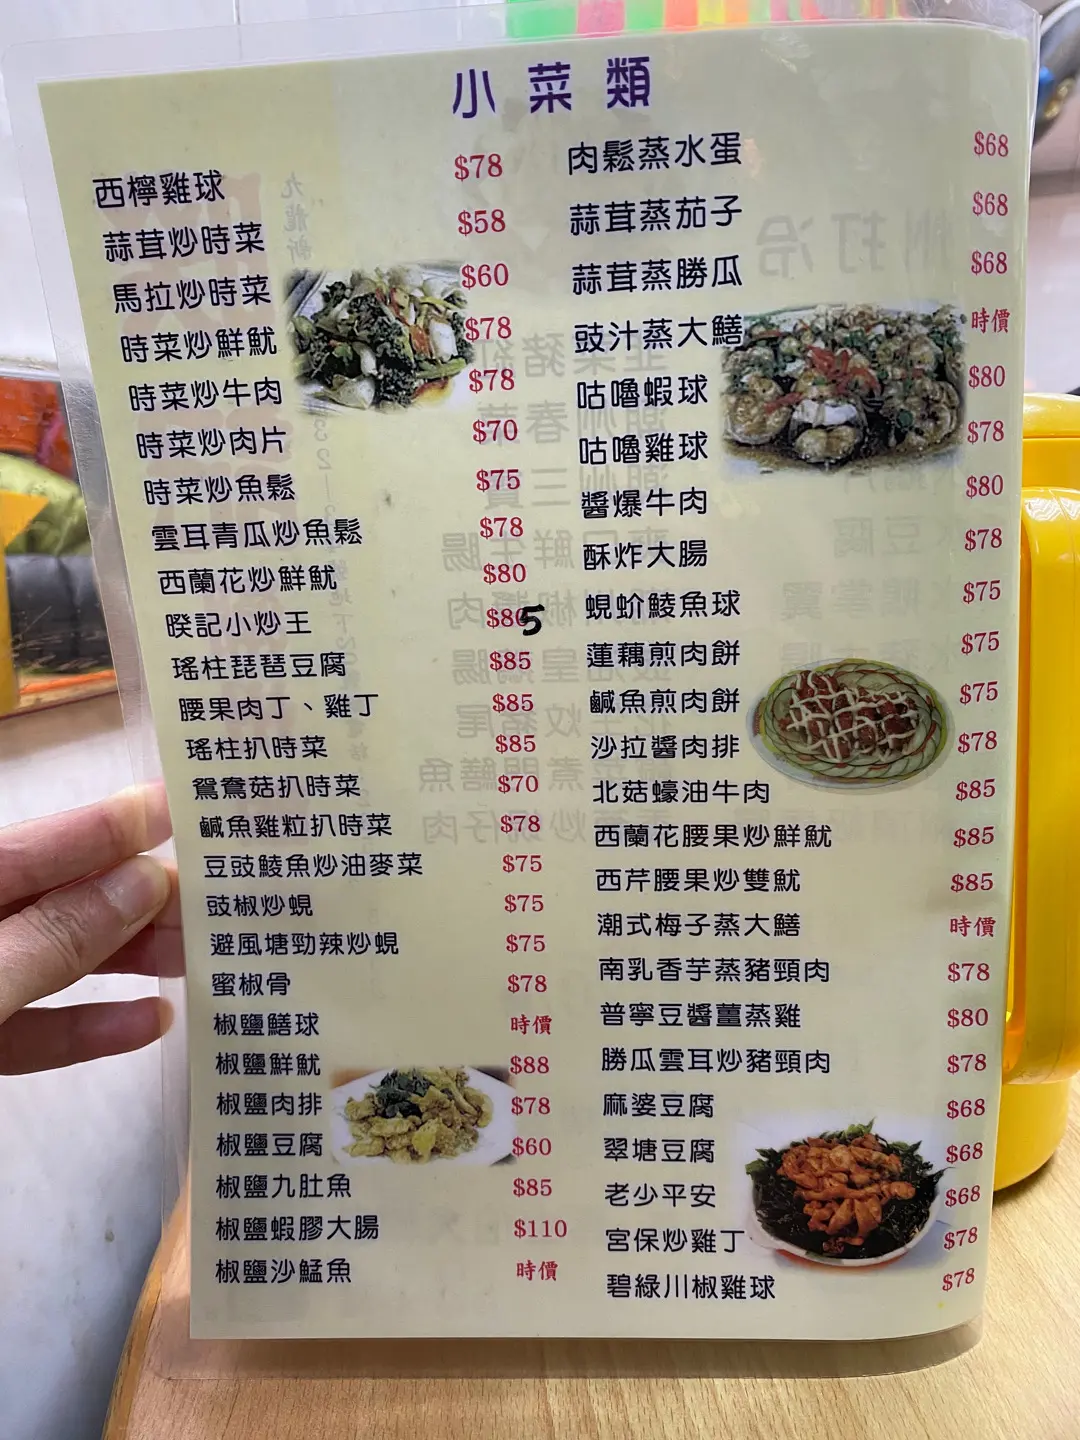 小菜類
西檸雞球 $78
蒜茸炒時菜 $58
馬拉炒時菜 $60
時菜炒鮮魷 $78
時菜炒牛肉 $78
時菜炒肉片 $70
時菜炒魚鬆 $75
雲耳青瓜炒魚鬆 $78
西蘭花炒鮮魷 $80
睽記小炒王 $85
瑤柱琵琶豆腐 $85
腰果肉丁、雞丁 $85
瑤柱扒時菜 $85
鴛鴦菇扒時菜 $70
鹹魚雞粒扒時菜 $78
豆豉鯪魚炒油麥菜 $75
豉椒炒蜆 $75
避風塘勁辣炒蜆 $75
蜜椒骨 $78
椒鹽鱔球 時價
椒鹽鮮魷 $88
椒鹽肉排 $78
椒鹽豆腐 $60
椒鹽九肚魚 $85
椒鹽蝦膠大腸 $110
椒鹽沙鯭魚 時價
肉鬆蒸水蛋 $68
蒜茸蒸茄子 $68
蒜茸蒸勝瓜 $68
豉汁蒸大鱔 時價
咕嚕蝦球 $80
咕嚕雞球 $78
醬爆牛肉 $80
酥炸大腸 $78
蜆蚧鯪魚球 $75
蓮藕煎肉餅 $75
鹹魚煎肉餅 $75
沙拉醬肉排 $78
北菇蠔油牛肉 $85
西蘭花腰果炒鮮魷 $85
西芹腰果炒雙魷 $85
潮式梅子蒸大鱔 時價
南乳香芋蒸豬頸肉 $78
普寧豆醬薑蒸雞 $80
勝瓜雲耳炒豬頸肉 $78
麻婆豆腐 $68
翠塘豆腐 $68
老少平安 $68
宮保炒雞丁 $78
碧綠川椒雞球 $78